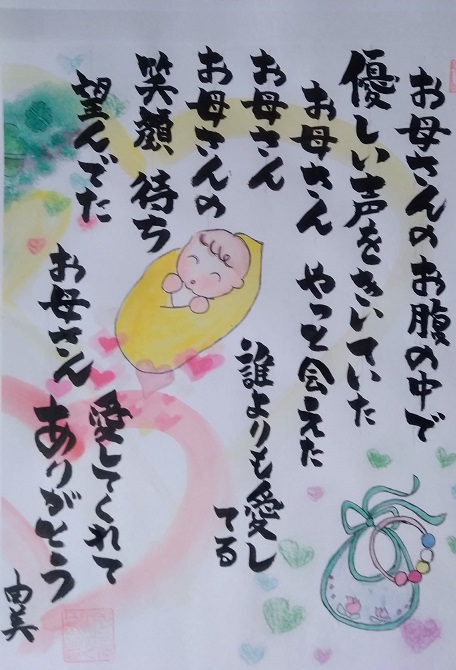 お母さんのお腹の中で
優しい声をきいていた
お母さん やっと会えた
お母さん
誰よりも愛し
てる
お母さんの
笑顔 待ち
望んでた
お母さん 愛してくれて
ありがとう
由美